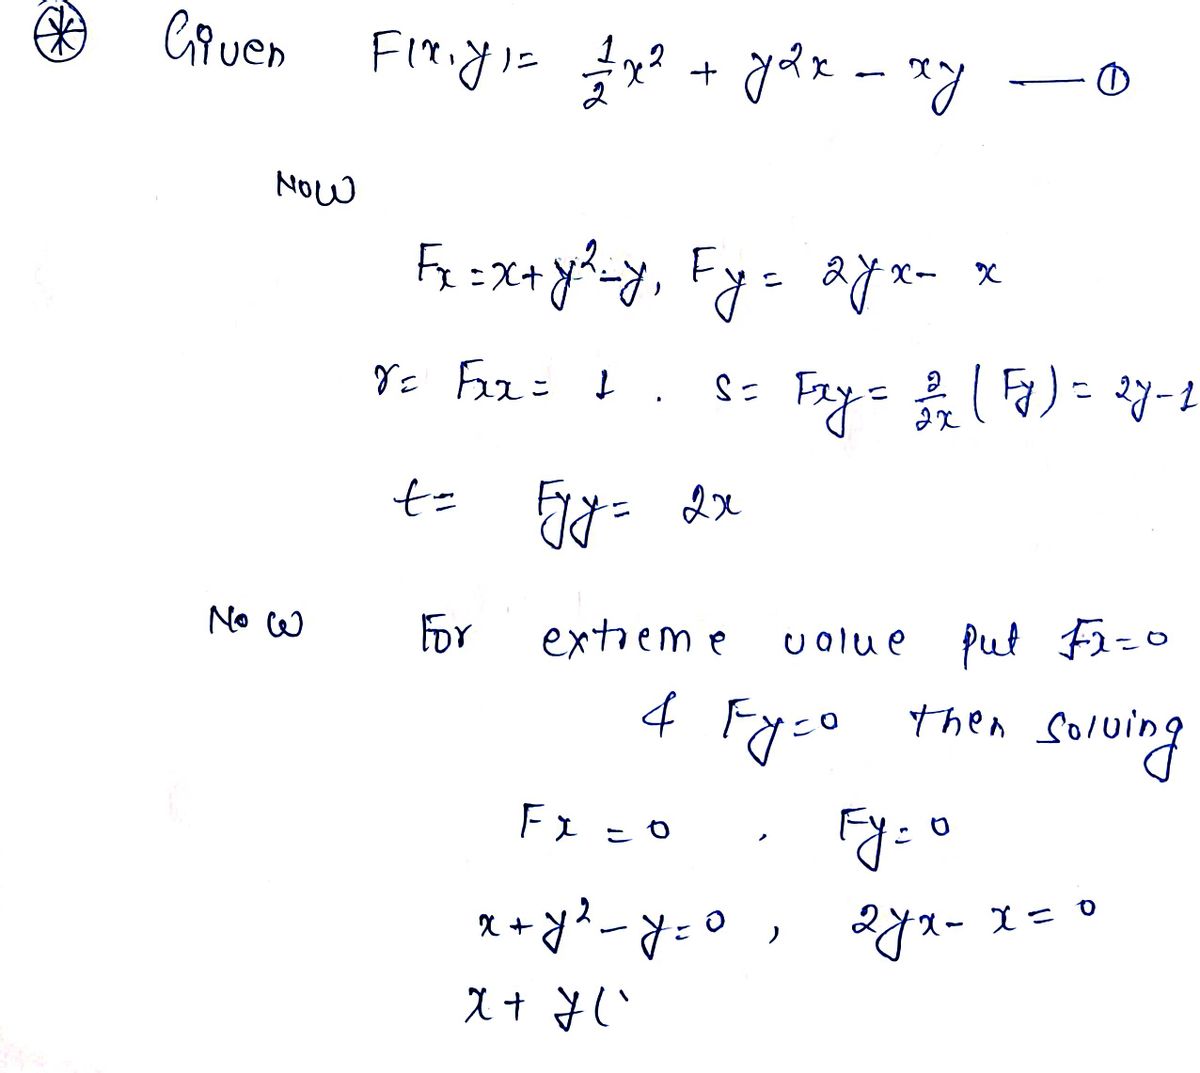 ⊛ Given F(x,y)= 1/2 x² + y2x - xy —①
Now
Fx = x+y²-y, Fy = 2yx- x
r= Fxx = 1 . s= Fxy= ∂/∂x (Fy) = 2y-1
t= Fyy= 2x
Now For extreme value put Fx=0
& Fy=0 then solving
Fx =0 , Fy=0
x+y²-y=0 , 2yx- x=0
x+ y(